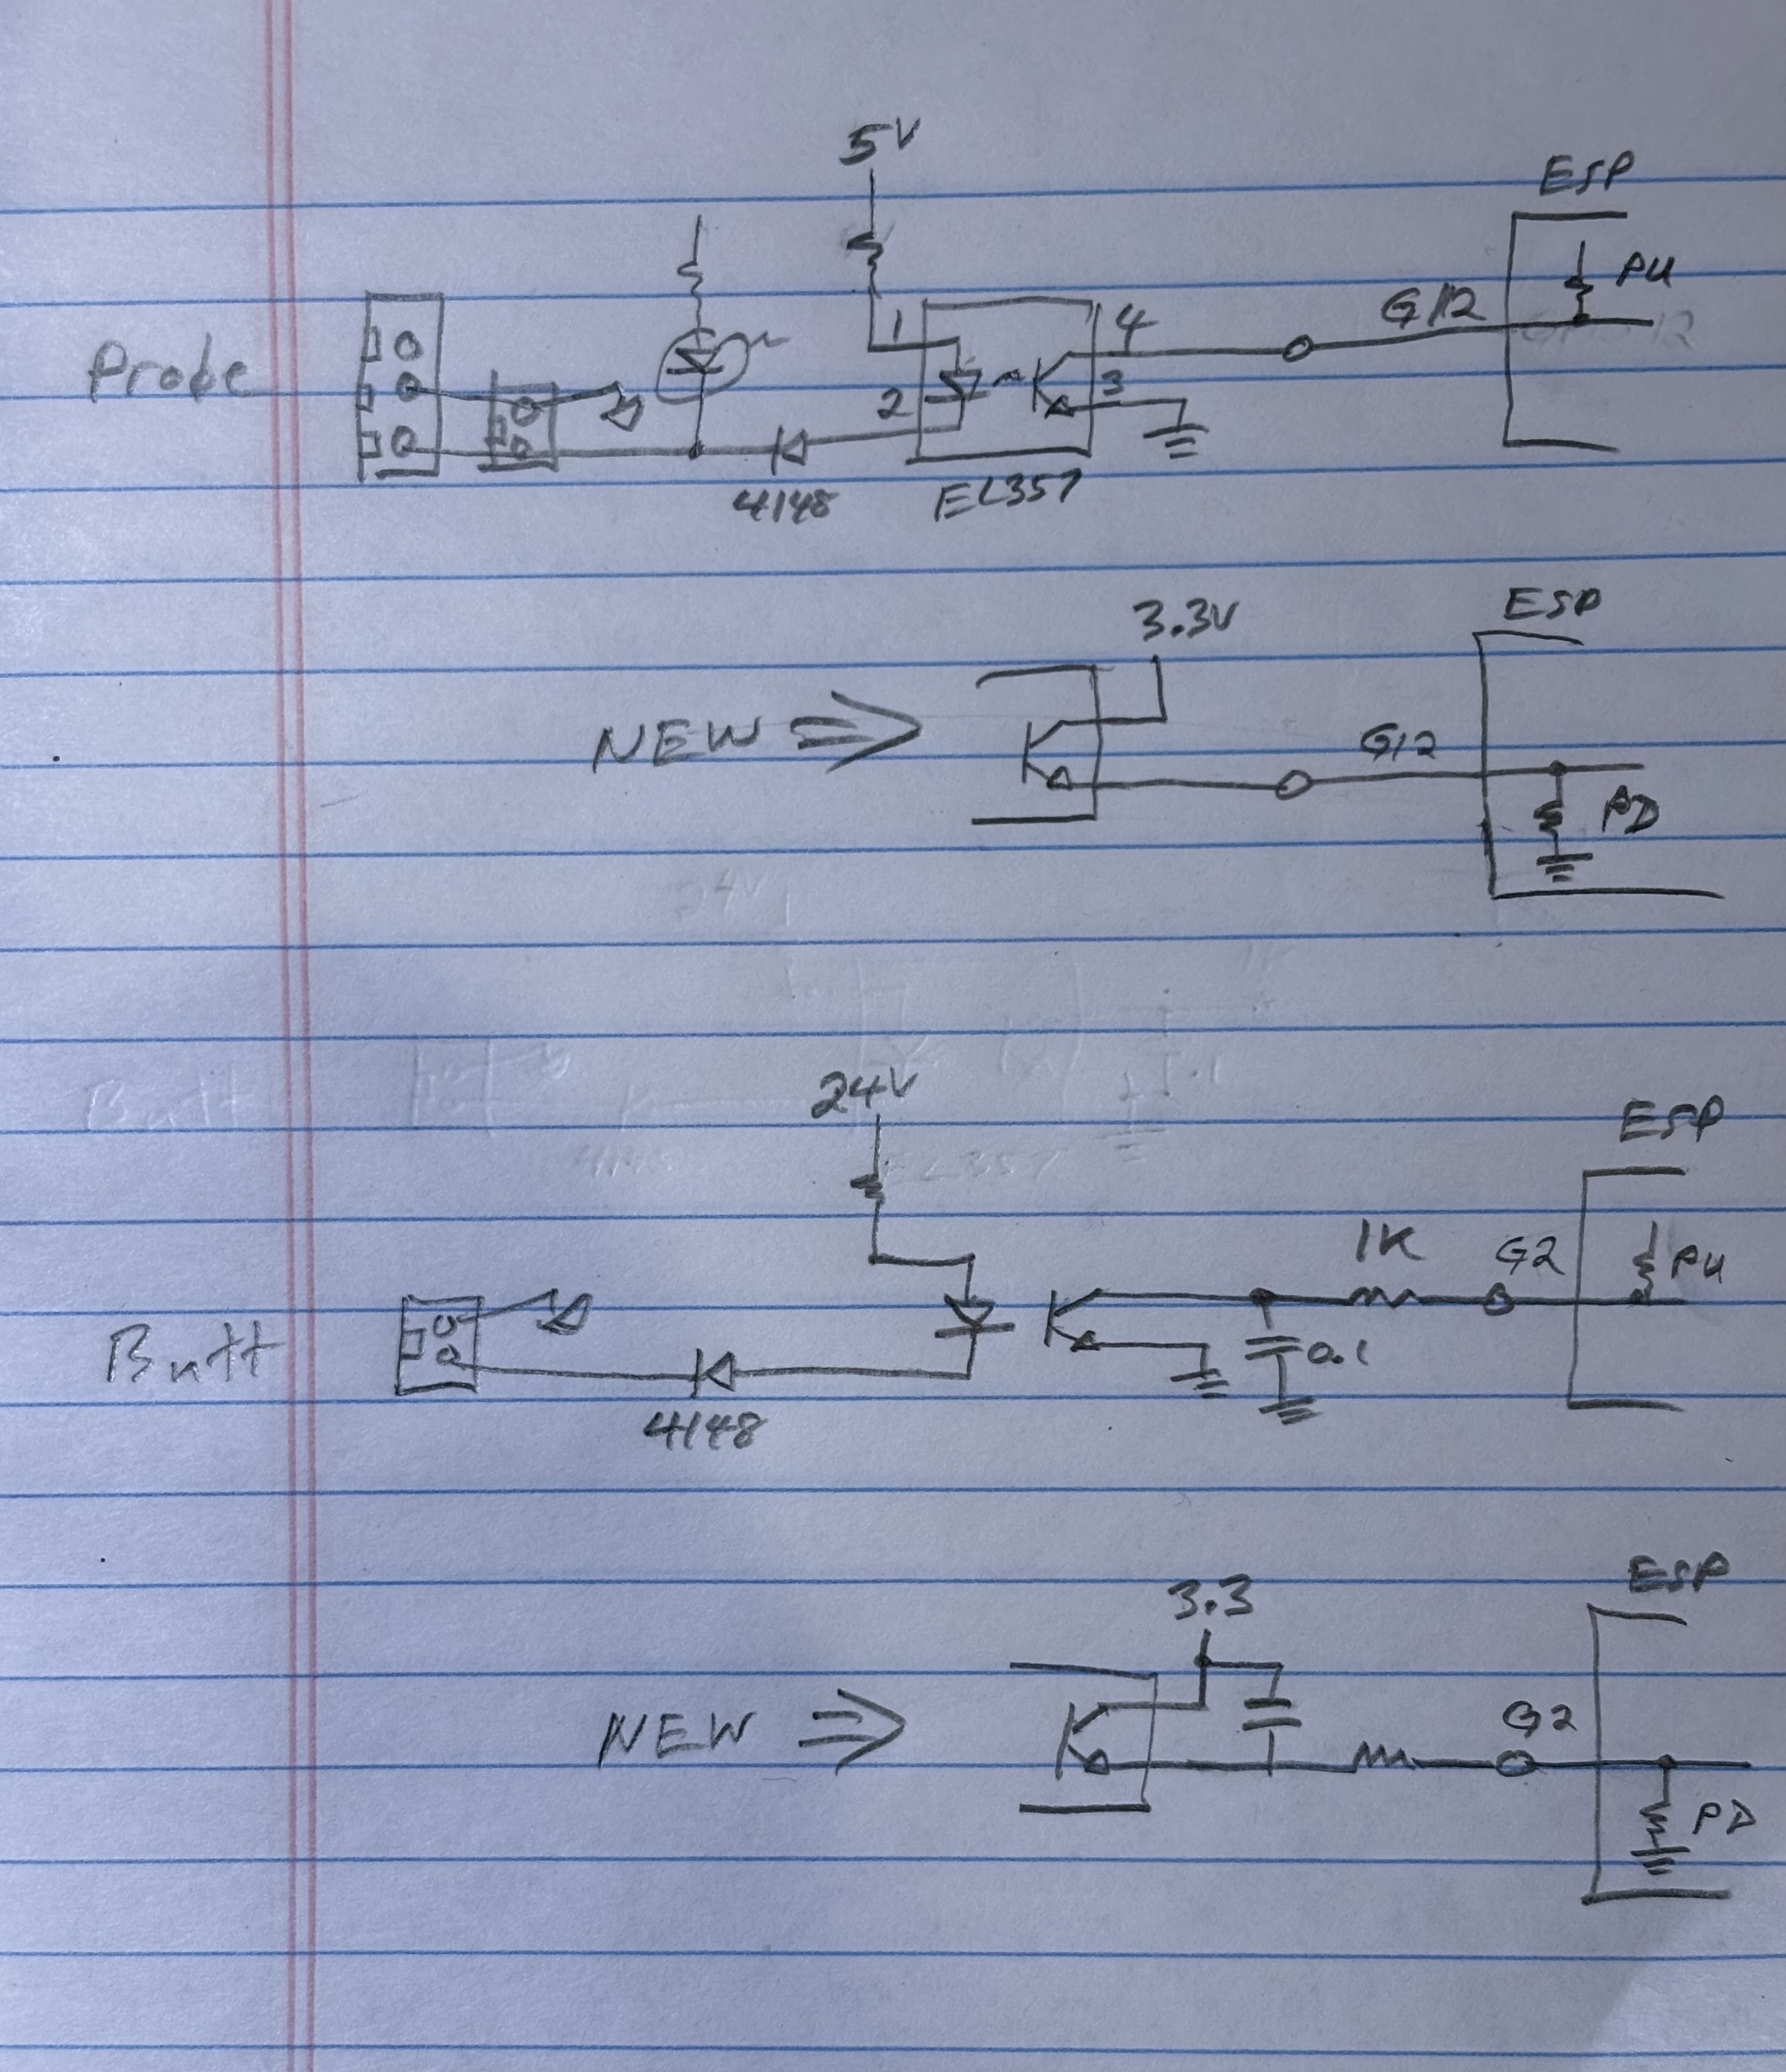 5V
ESP
PU
Probe
1
4
G12
2
3
4148
EL357
3.3V
ESP
NEW
G12
PD
24V
ESP
1K
G2
PU
Butt
0.1
4148
3.3
ESP
NEW
G2
PD